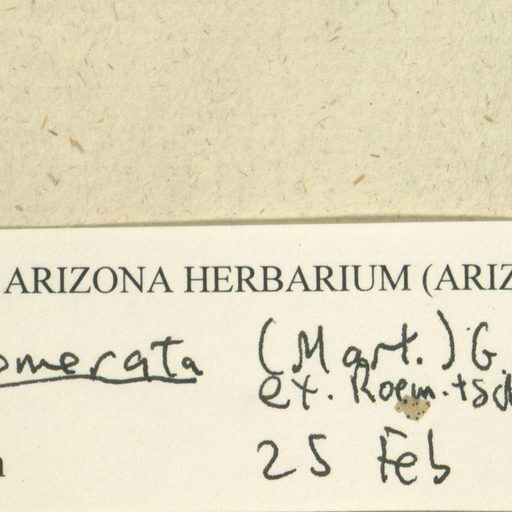 ARIZONA HERBARIUM (ARIZ
omerata (Mart.) G.
ex. Roem. + Sch
25 Feb